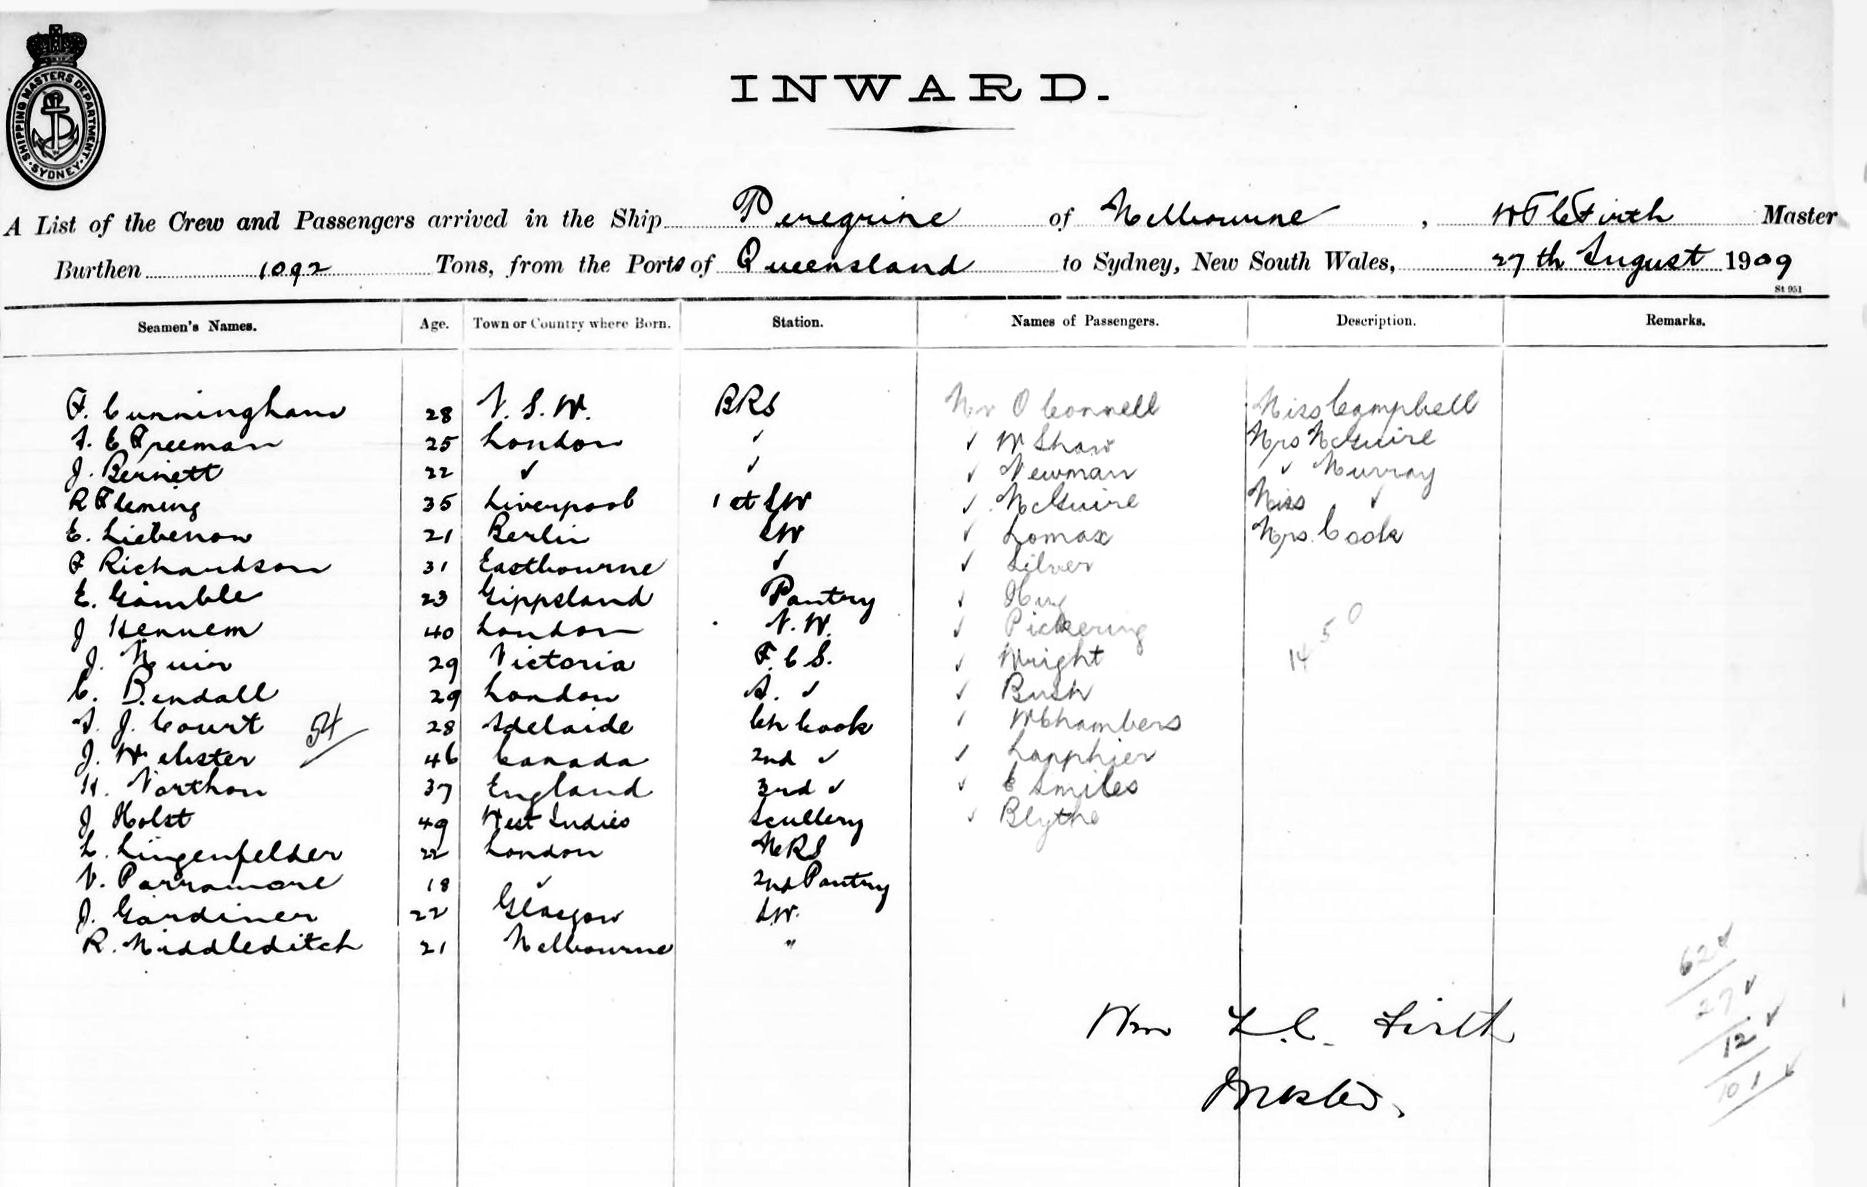 SHIPPING MASTERS DEPARTMENT. SYDNEY.
INWARD.
A List of the Crew and Passengers arrived in the Ship Peregrine of Melbourne, W F C Firth Master
Burthen 1092 Tons, from the Ports of Queensland to Sydney, New South Wales, 27th August 1909
St 951
Seamen's Names. Age. Town or Country where Born. Station. Names of Passengers. Description. Remarks.
F. Cunningham 28 N. S. W. BRS Mr O Connell Miss Campbell
F. E Freeman 25 London ✓ ✓ W Shaw Mrs McGuire
J. Bernett 22 ✓ ✓ ✓ Newman ✓ Murray
R Fleming 35 Liverpool 1st SW ✓ McGuire Miss ✓
E. Liebenow 21 Berlin SW ✓ Lomax Mrs. Cook
F Richardson 31 Eastbourne ✓ ✓ Silver
E. Gamble 23 Gippsland Pantry ✓
J Hennem 40 London N. W. ✓ Pickering
J. Muir 29 Victoria F. C S. ✓ Wright
C. Bendall 29 London S. ✓ ✓ Bush
S. J. Court 28 Adelaide Ch Cook ✓ W Chambers
J. Webster 46 Canada 2nd ✓ ✓ Lapphier
H. Northon 37 England 3rd ✓ ✓ E Smiles
J Holst 49 West Indies Scullery ✓ Blythe
L. Lingenfelder 22 London MRS
V. Parramore 18 ✓ 2nd Pantry
J. Gardiner 22 Glasgow SW.
R. Middleditch 21 Melbourne "
62 ✓
27 ✓
12 ✓
101 ✓
Wm F. C. Firth
Master.